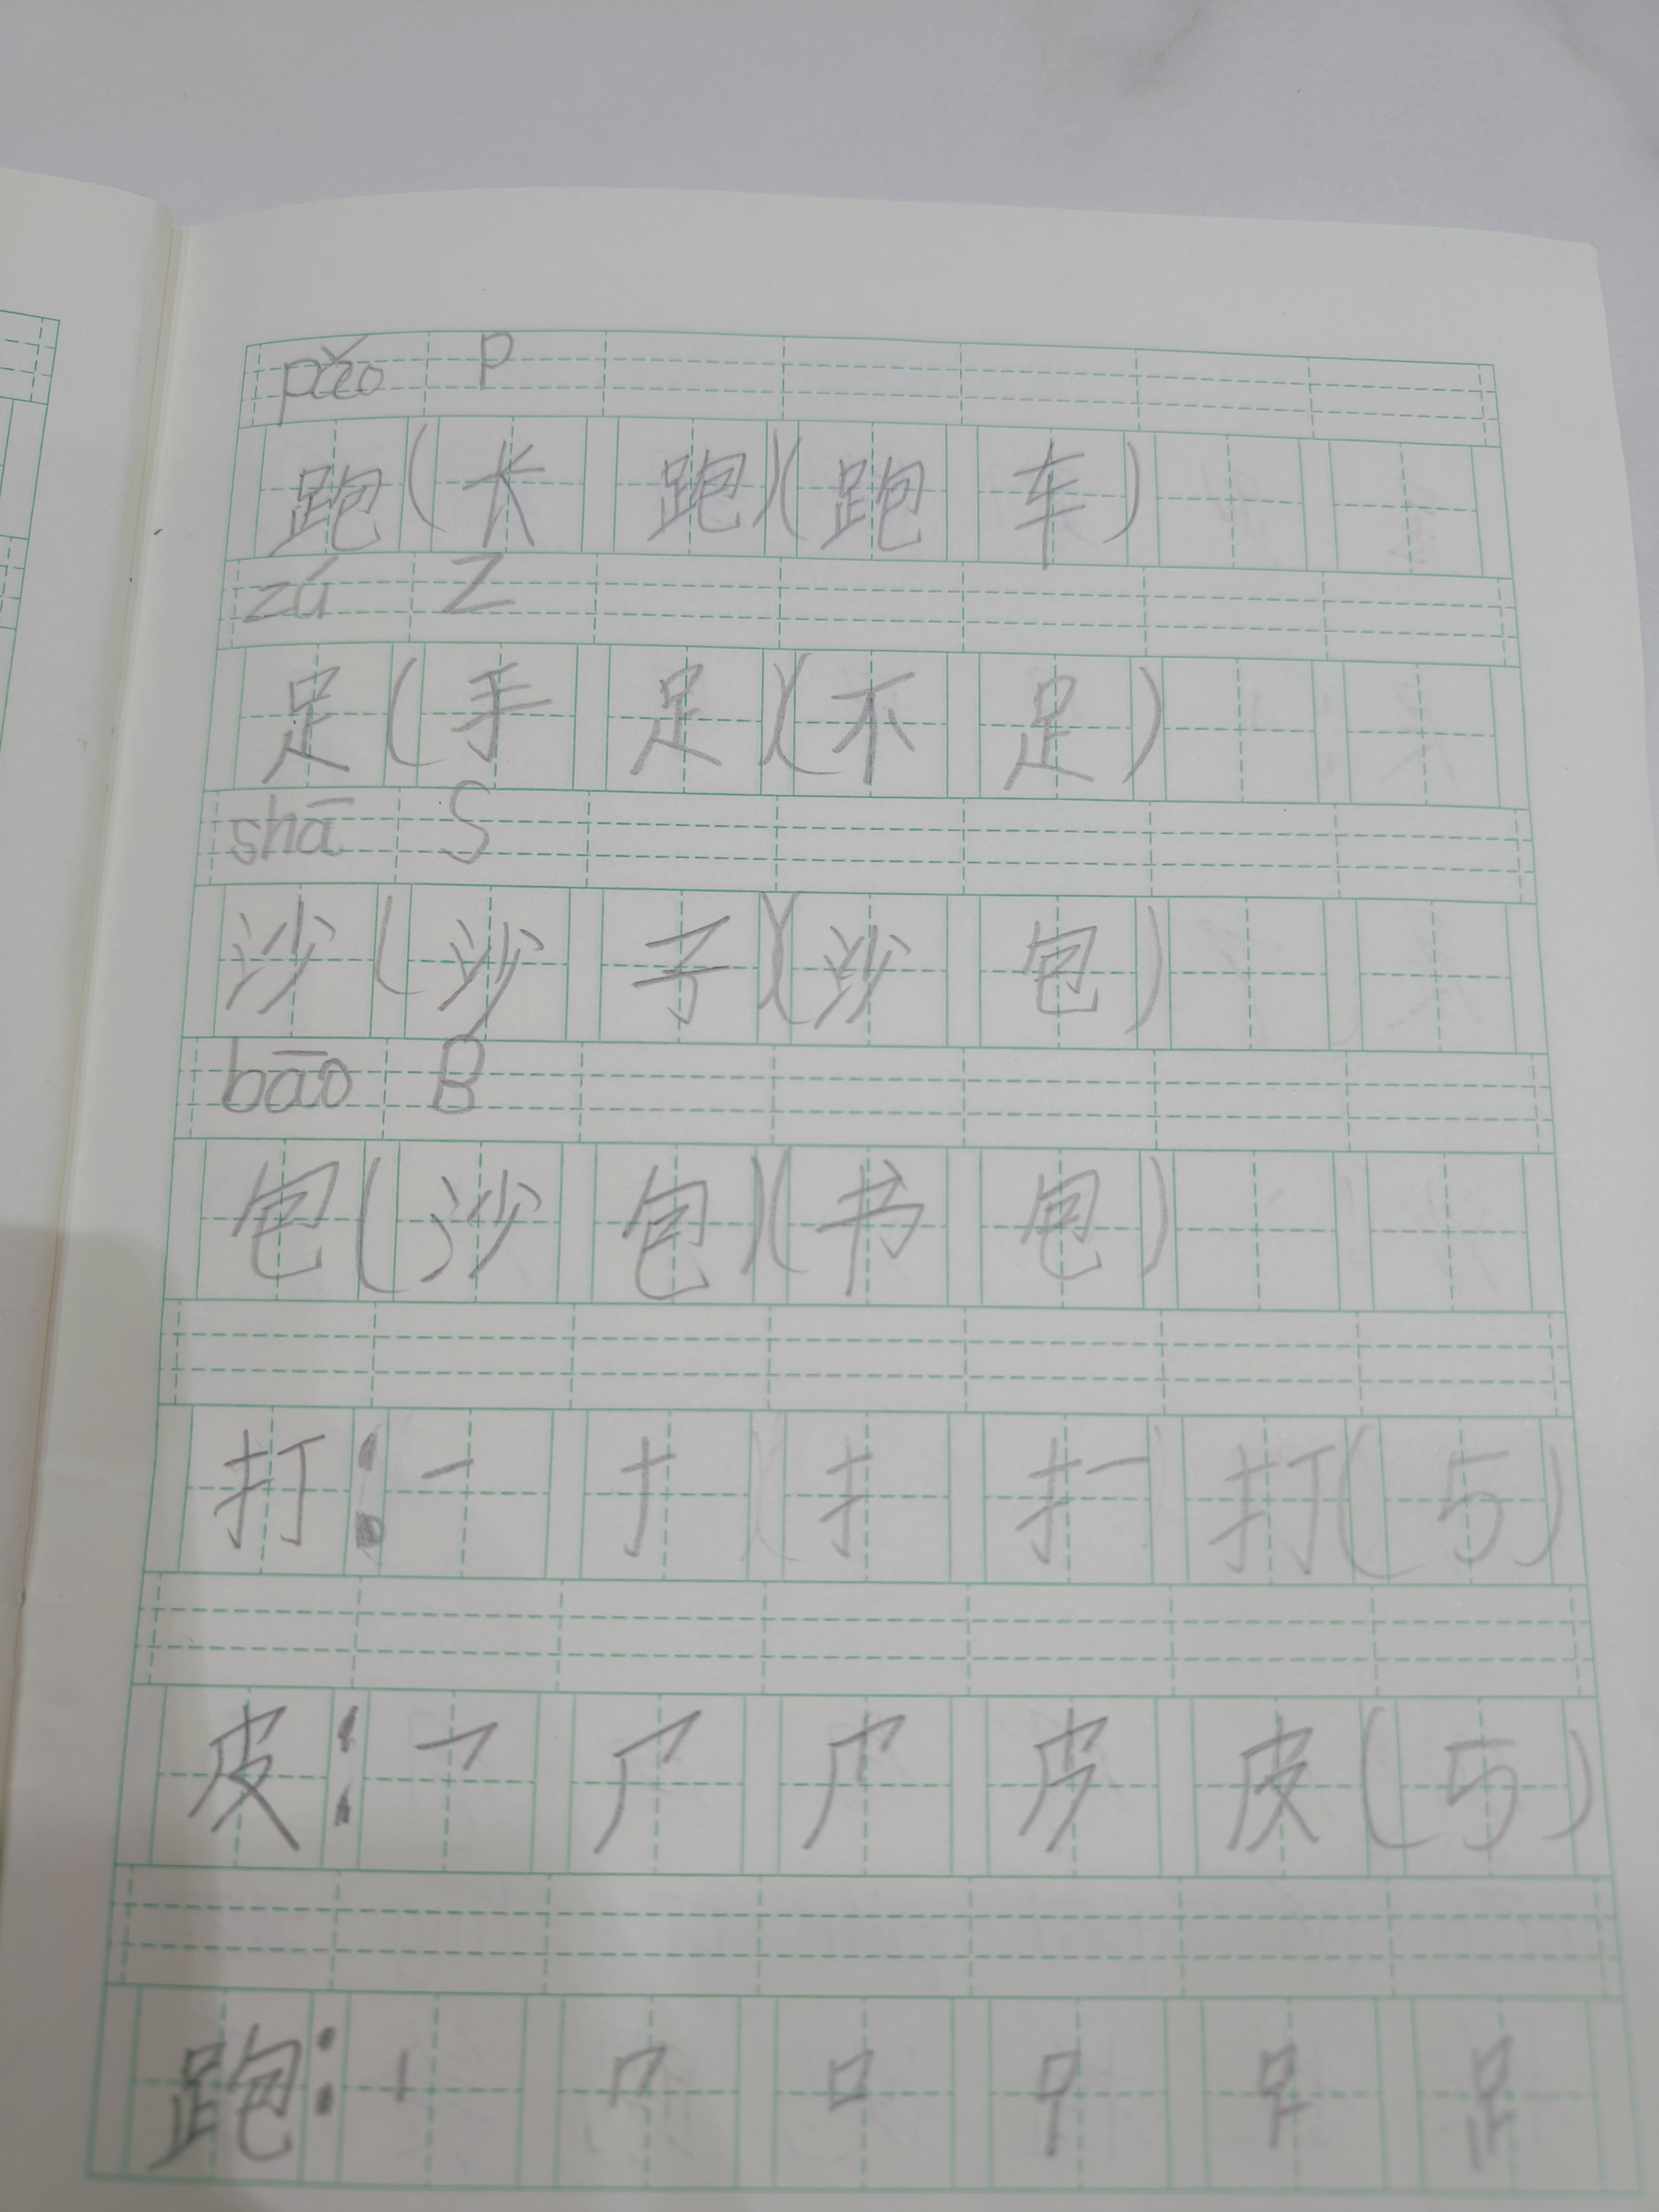 pǎo P
跑(长跑)(跑车)
zú Z
足(手足)(不足)
shā S
沙(沙子)(沙包)
bāo B
包(沙包)(书包)
打:一 十 扌 扌一 打(5)
皮:乛 厂 皮(5)
跑:丨 冂 口